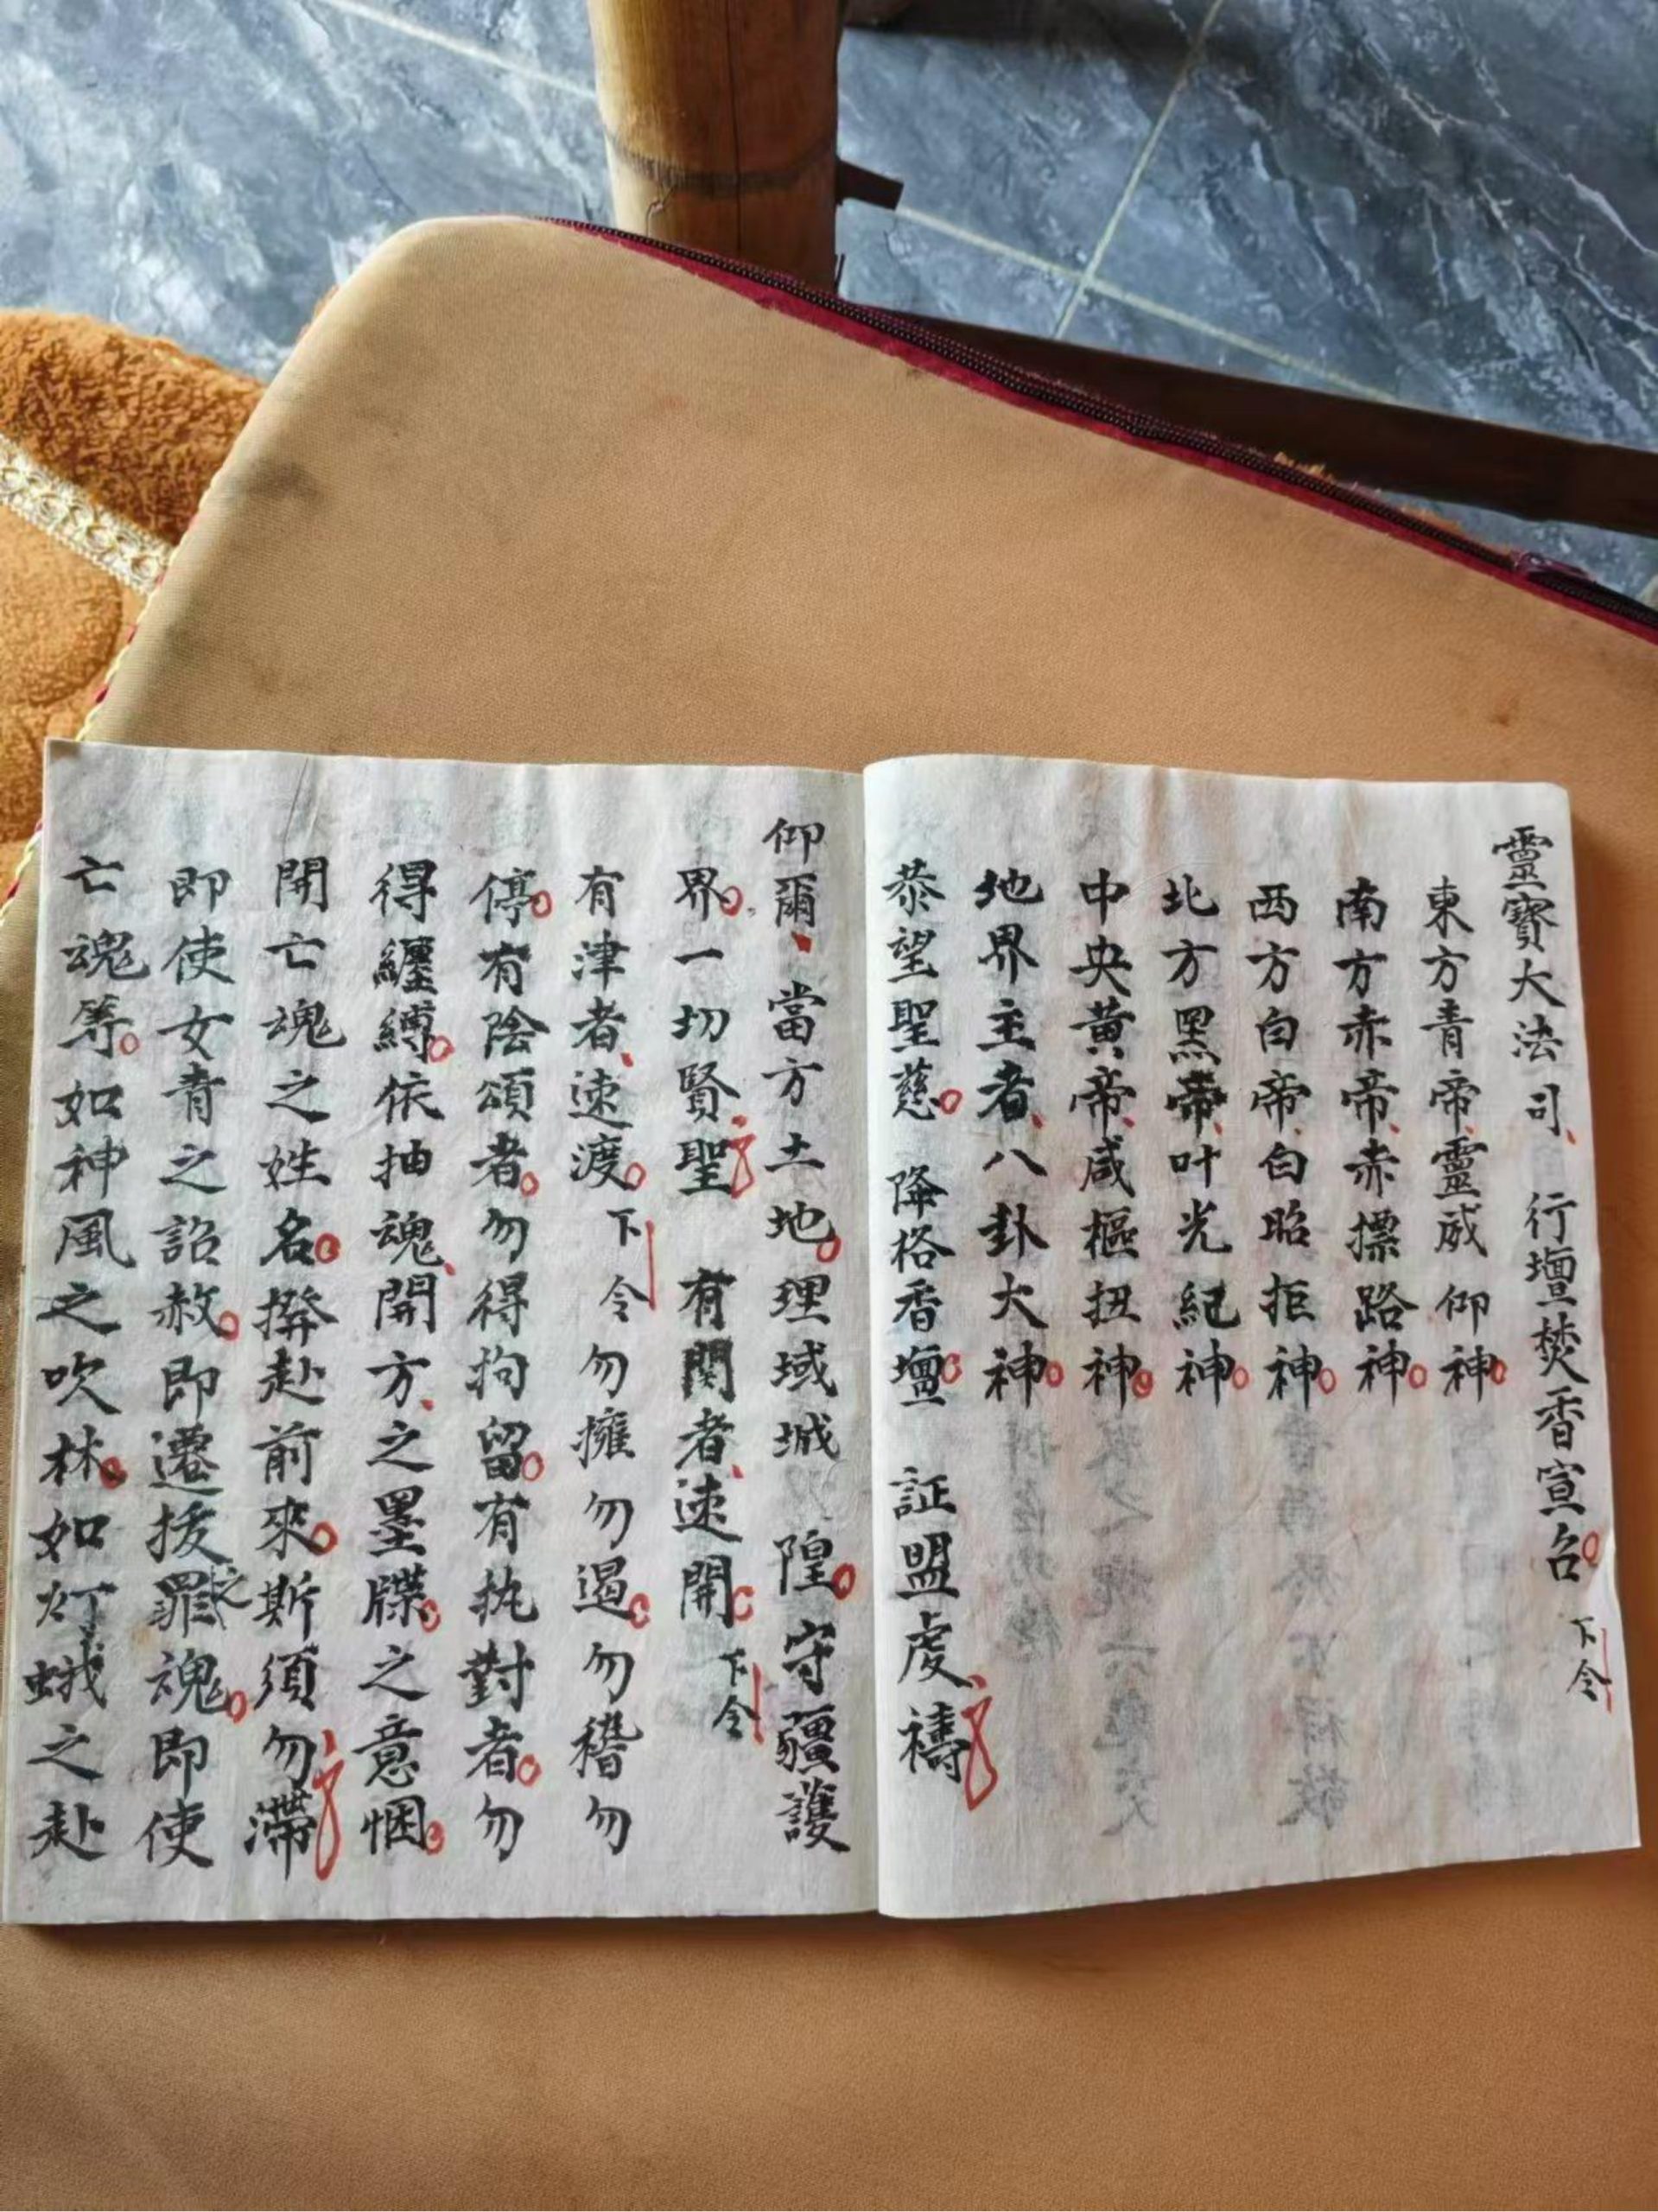 靈寶大法司 行壇焚香宣名 下令
東方青帝靈威仰神
南方赤帝赤摽路神
西方白帝白昭拒神
北方黑帝叶光紀神
中央黃帝咸樞扭神
地界主者八卦大神
恭望聖慈 降格香壇 証盟虔禱
仰爾當方土地理域城隍守疆護
界一切賢聖 有関者速開 下令
有津者速渡 下令 勿擁勿遏勿稽勿
停有陰頌者勿得拘留有执對者勿
得纏縛依抽魂開方之墨牒之意悃
開亡魂之姓名揆赴前來斯須勿滯
即使女青之詔赦即遷拔罪之魂即使
亡魂等如神風之吹林如灯蛾之赴